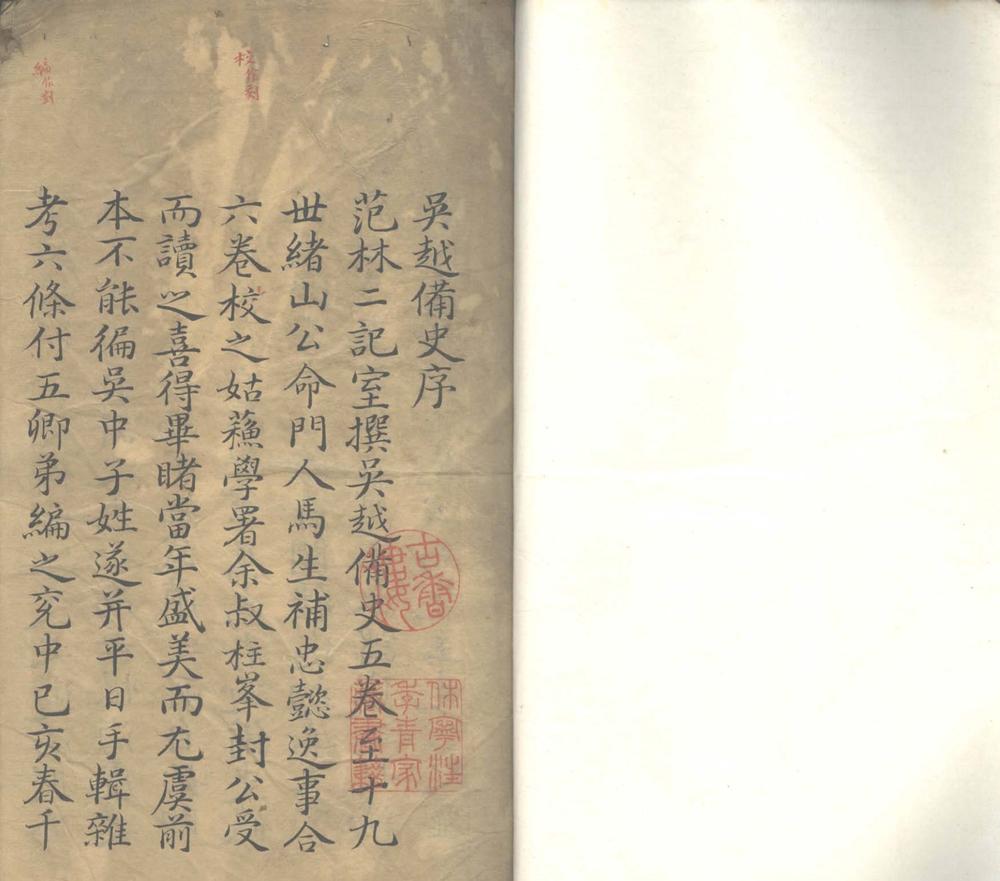 吳越備史序
范林二記室撰吳越備史五卷至十九
世緒山公命門人馬生補忠懿逸事合
六卷校之姑蘓學署余叔柱峯封公受
而讀之喜得畢睹當年盛美而尤虞前
本不能徧吳中子姓遂并平日手輯雜
考六條付五卿弟編之兖中已亥春千
校作刻
編作刻
古香樓
休寧汪
季青家
藏書籍